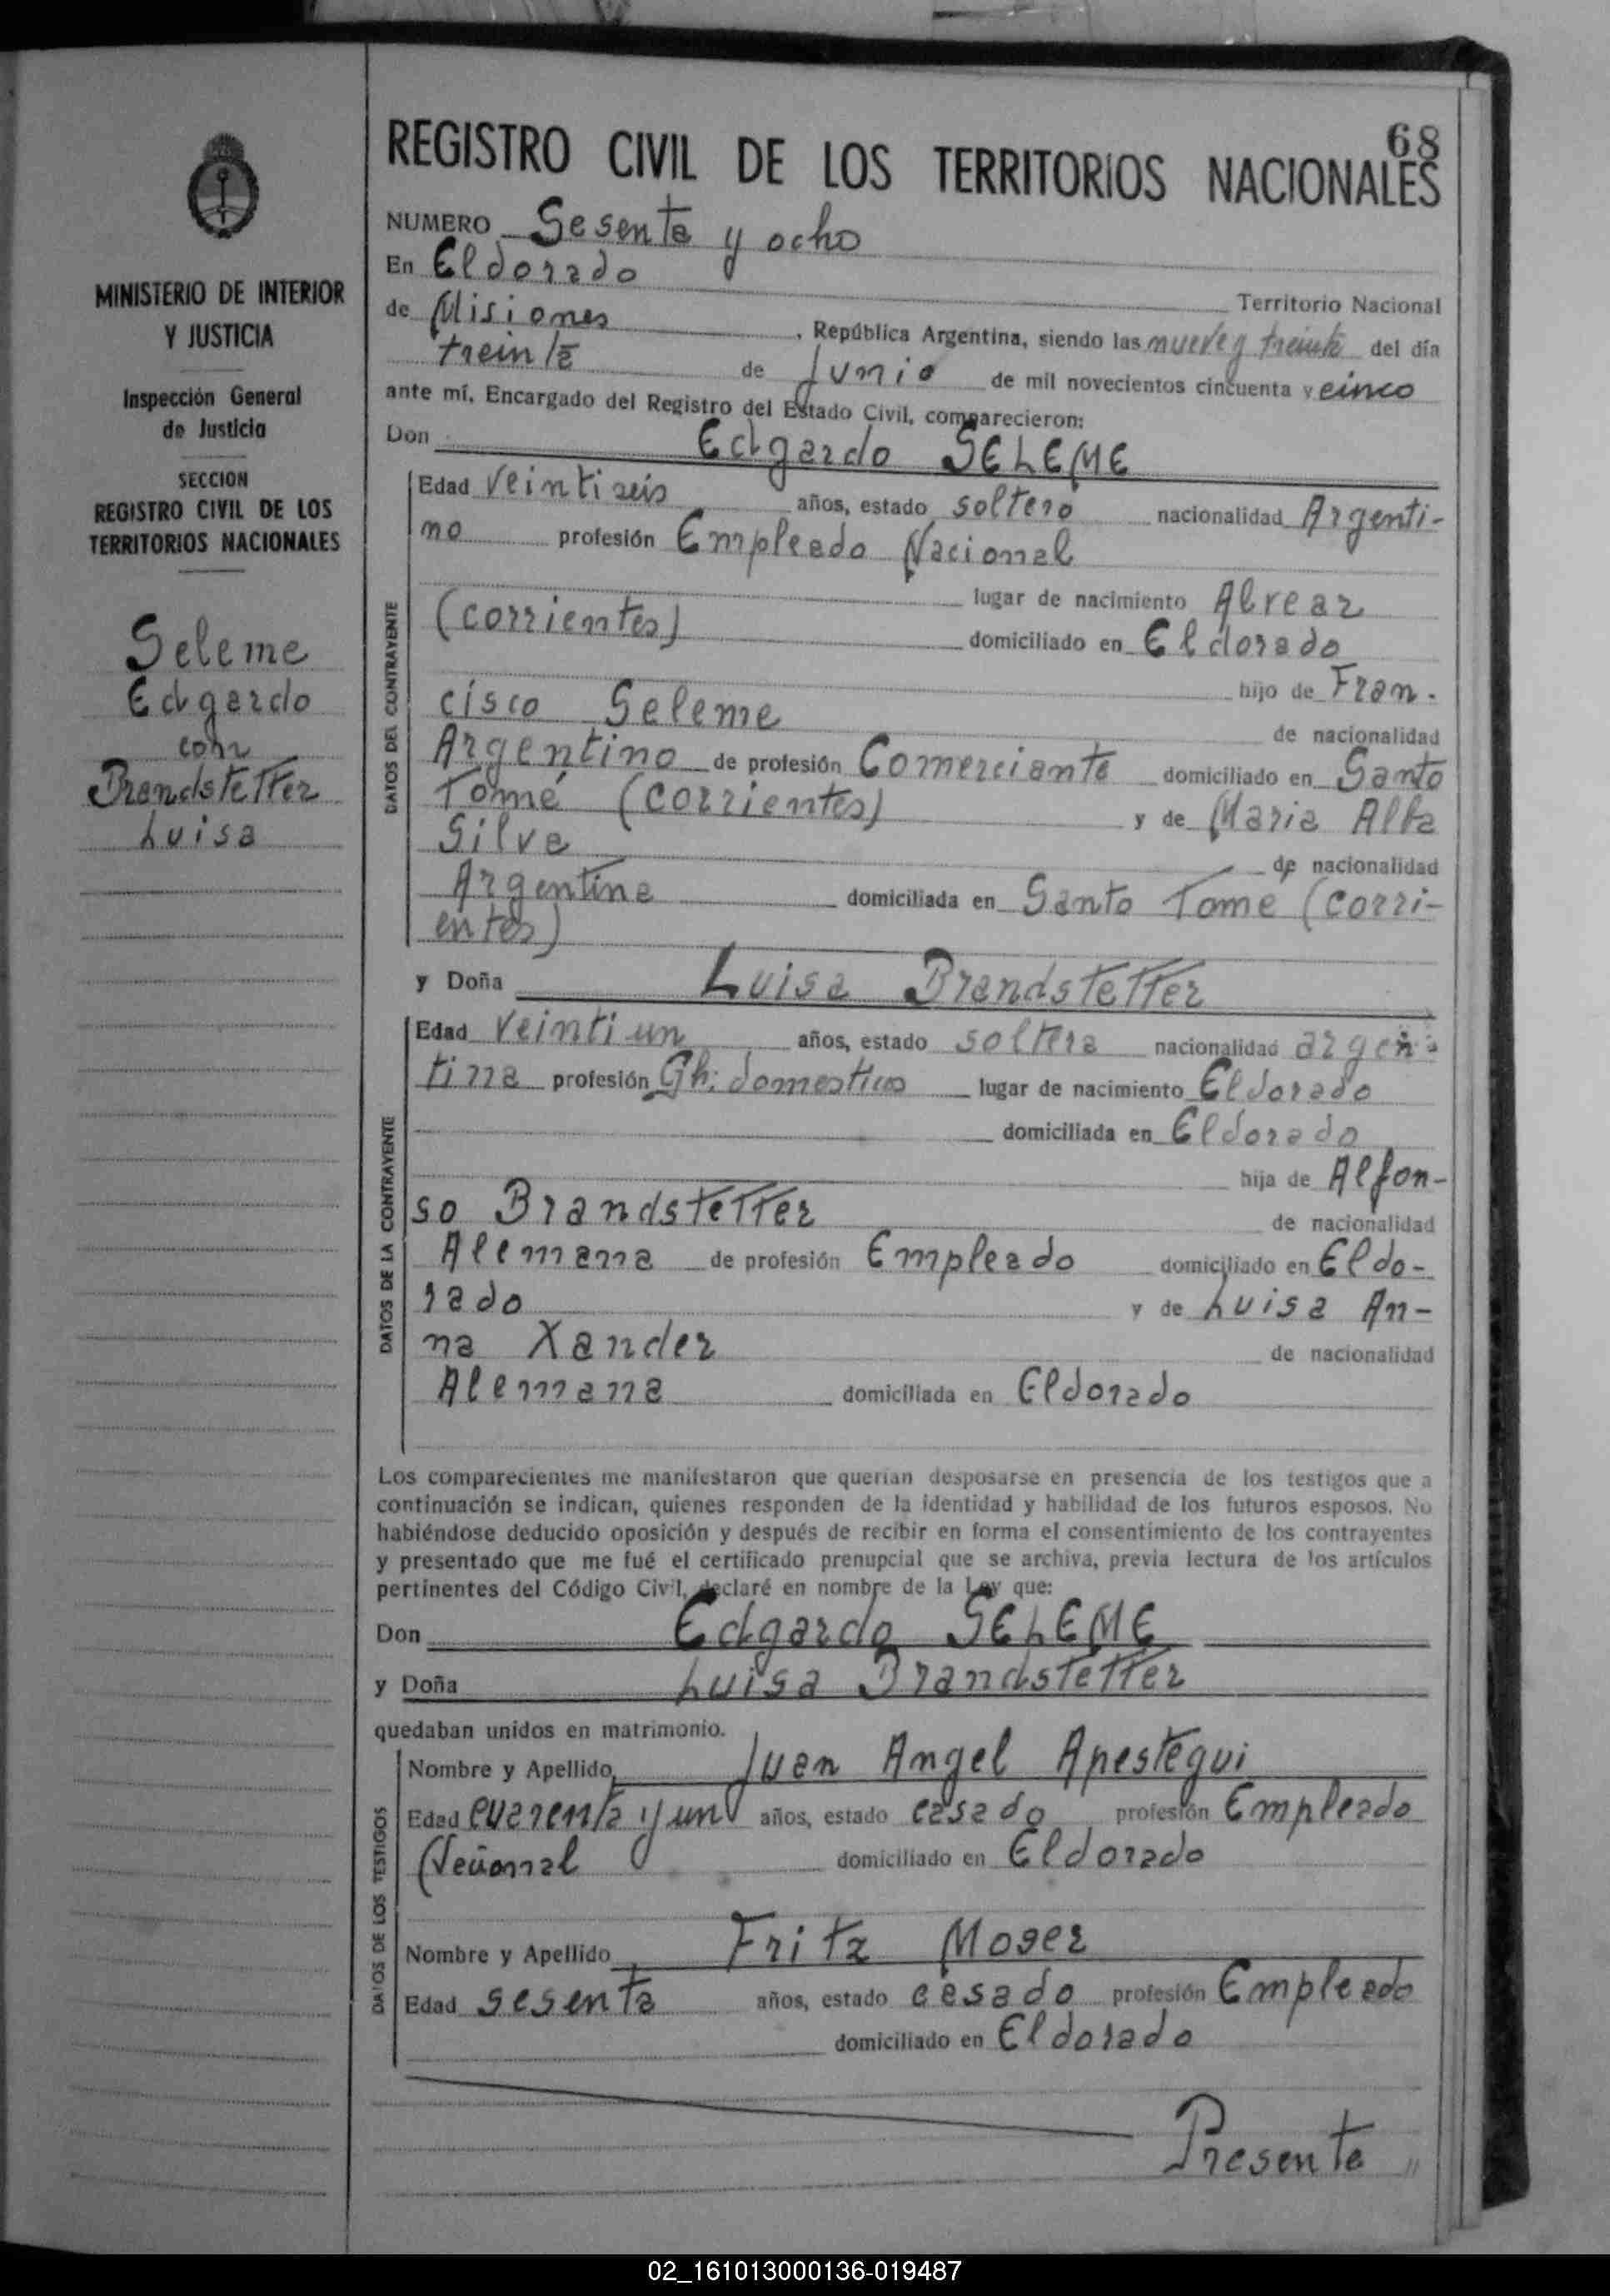 68
REGISTRO CIVIL DE LOS TERRITORIOS NACIONALES
NUMERO Sesenta y ocho
En Eldorado
Territorio Nacional
de Misiones, República Argentina, siendo las nueve y treinta del día
treinta de Junio de mil novecientos cincuenta y cinco
ante mí, Encargado del Registro del Estado Civil, comparecieron:
Don Edgardo SELEME
DATOS DEL CONTRAYENTE
Edad veintiseis años, estado soltero nacionalidad Argenti-
no profesión Empleado Nacional
lugar de nacimiento Alvear
(corrientes) domiciliado en Eldorado
hijo de Fran-
cisco Seleme de nacionalidad
Argentino de profesión Comerciante domiciliado en Santo
Tomé (corrientes) y de Maria Alba
Silva de nacionalidad
Argentina domiciliada en Santo Tome (corri-
entes)
y Doña Luisa Brandstetter
DATOS DE LA CONTRAYENTE
Edad veintiun años, estado soltera nacionalidad argen-
tina profesión Qh. domesticos lugar de nacimiento Eldorado
domiciliada en Eldorado
hija de Alfon-
so Brandstetter de nacionalidad
Alemana de profesión Empleado domiciliado en Eldo-
rado y de Luisa An-
na Xander de nacionalidad
Alemana domiciliada en Eldorado
Los comparecientes me manifestaron que querían desposarse en presencia de los testigos que a
continuación se indican, quienes responden de la identidad y habilidad de los futuros esposos. No
habiéndose deducido oposición y después de recibir en forma el consentimiento de los contrayentes
y presentado que me fué el certificado prenupcial que se archiva, previa lectura de los artículos
pertinentes del Código Civil, declaré en nombre de la Ley que:
Don Edgardo SELEME
y Doña Luisa Brandstetter
quedaban unidos en matrimonio.
DATOS DE LOS TESTIGOS
Nombre y Apellido Juan Angel Apestegui
Edad cuarenta y un años, estado casado profesión Empleado
Nacional domiciliado en Eldorado
Nombre y Apellido Fritz Moser
Edad sesenta años, estado casado profesión Empleado
domiciliado en Eldorado
Presente
MINISTERIO DE INTERIOR
Y JUSTICIA
Inspección General
de Justicia
SECCION
REGISTRO CIVIL DE LOS
TERRITORIOS NACIONALES
Seleme
Edgardo
con
Brandstetter
Luisa
02_161013000136-019487